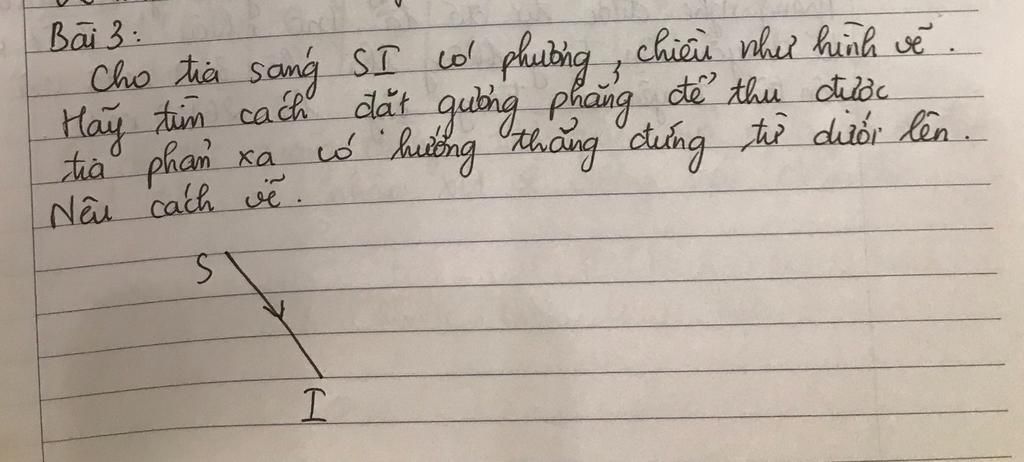 Bài 3:
Cho tia sáng SI có phương, chiều như hình vẽ.
Hãy tìm cách đặt gương phẳng để thu được
tia phản xạ có hướng thẳng đứng từ dưới lên.
Nêu cách vẽ.
S
I